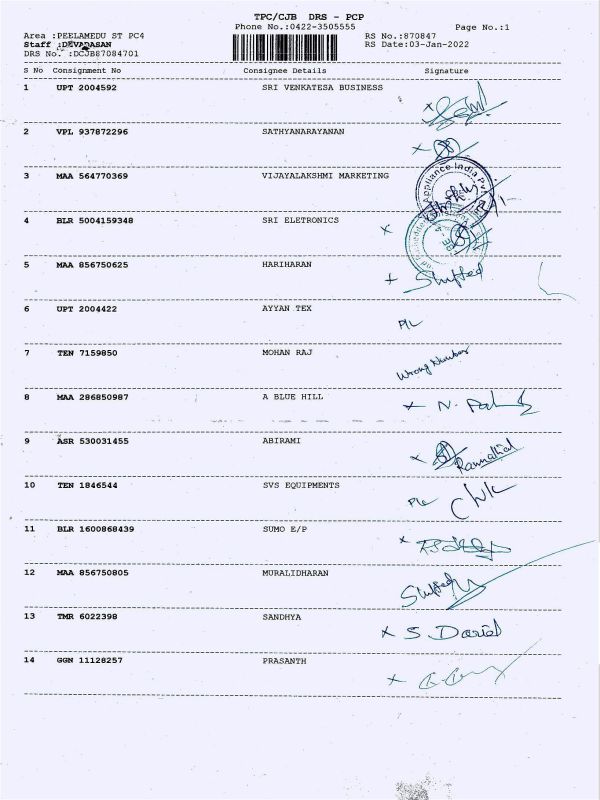 TPC/CJB DRS - PCP
Phone No.:0422-3505555 Page No.:1
Area :PEELAMEDU ST PC4 RS No.:870847
Staff :DEVADASAN RS Date:03-Jan-2022
DRS No. :DCJB87084701
S No Consignment No Consignee Details Signature
1 UPT 2004592 SRI VENKATESA BUSINESS
2 VPL 937872296 SATHYANARAYANAN
3 MAA 564770369 VIJAYALAKSHMI MARKETING
Appliance India Pvt
4 BLR 5004159348 SRI ELETRONICS
5 MAA 856750625 HARIHARAN Shifted
6 UPT 2004422 AYYAN TEX P/L
7 TEN 7159850 MOHAN RAJ Wrong Number
8 MAA 286850987 A BLUE HILL
9 ASR 530031455 ABIRAMI
10 TEN 1846544 SVS EQUIPMENTS
11 BLR 1600868439 SUMO E/P
12 MAA 856750805 MURALIDHARAN Shifted
13 TMR 6022398 SANDHYA x S. Daniel
14 GGN 11128257 PRASANTH